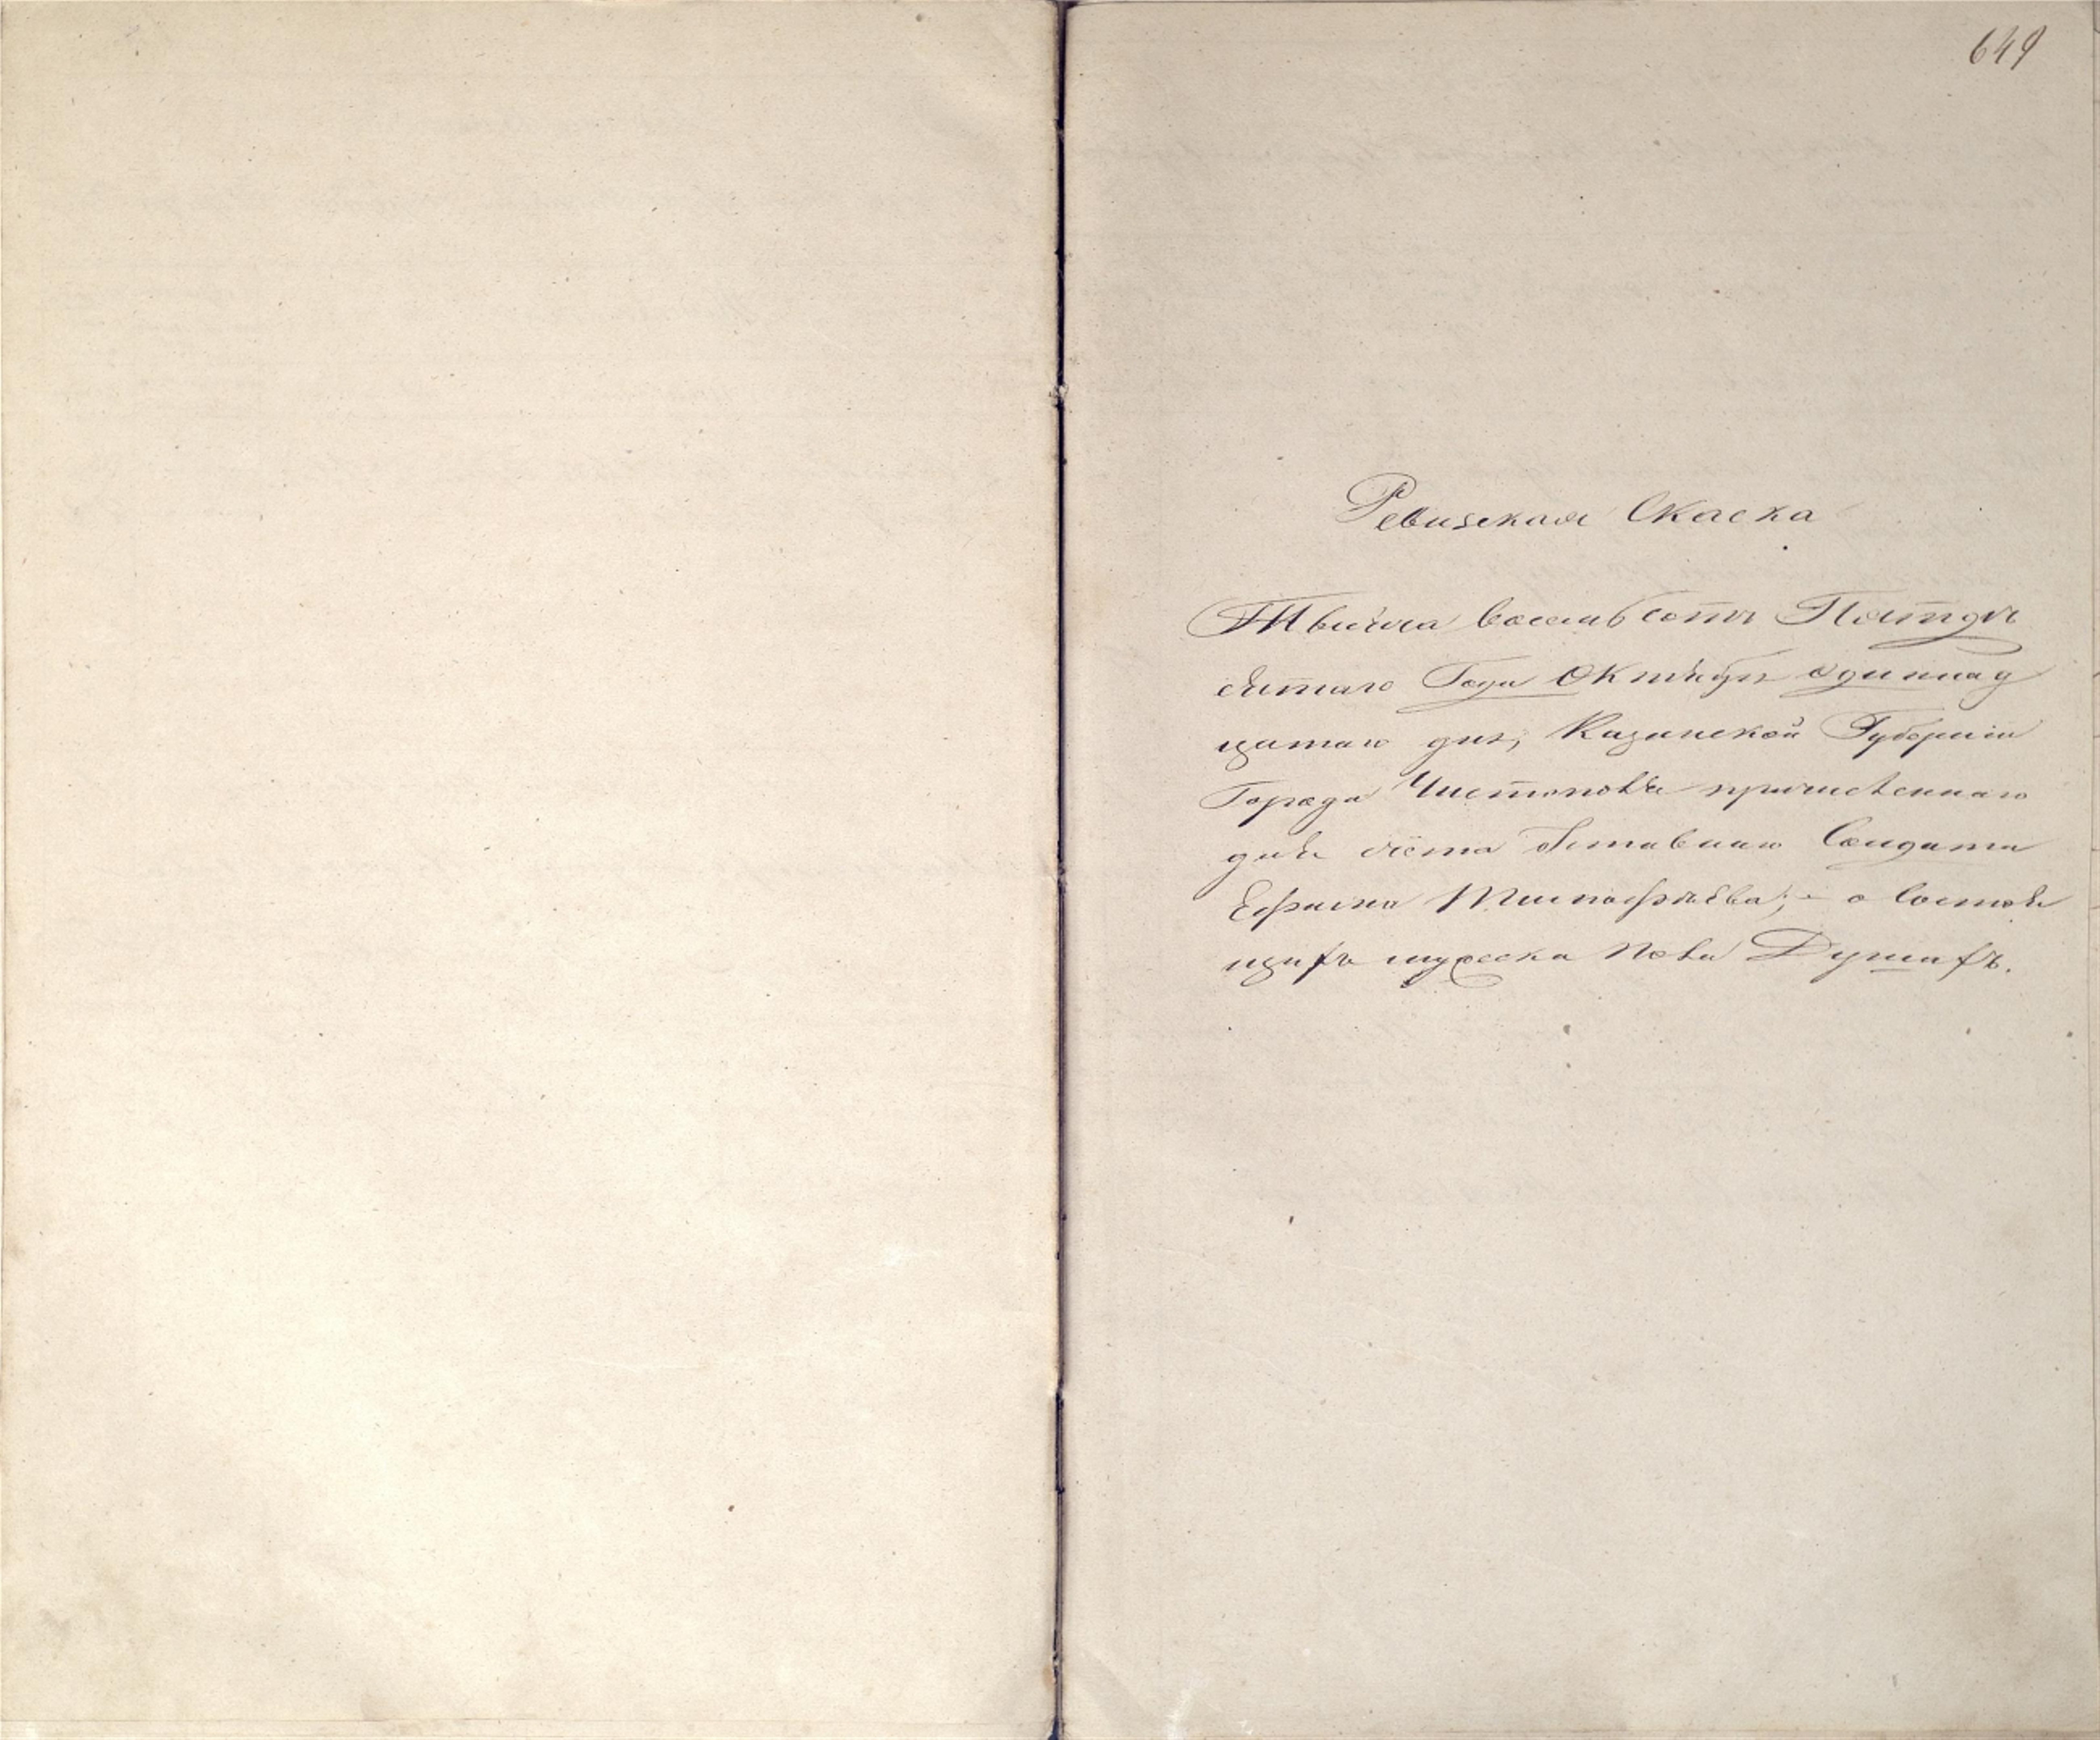 649
Ревизская Скаска
Тысяча восемьсотъ Пятдѣ
сятаго Года Октября одиннад
цатаго дня, Казанской Губерніи
Города Чистополя причисленнаго
для счета отставнаго Солдата
Ефрима Тимофѣева; о состоя
щихъ мужеска пола Душахъ.